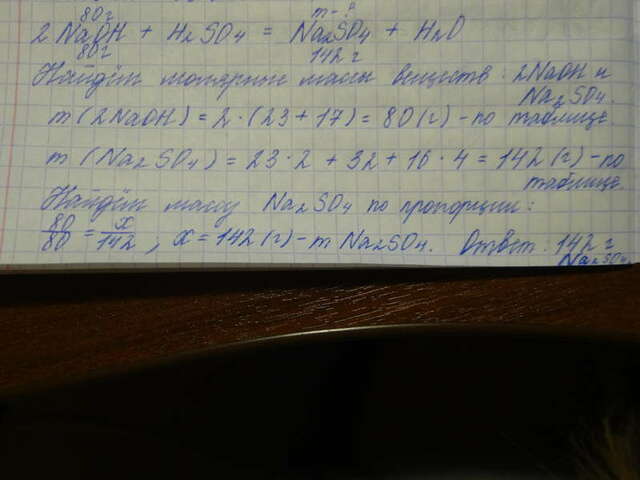 80г m - ?
2 NaOH + H₂SO₄ = Na₂SO₄ + H₂O
80г 142 г
Найдём молярные массы веществ: 2NaOH и
Na₂SO₄.
m (2NaOH) = 2·(23 + 17) = 80 (г) - по таблице
m (Na₂SO₄) = 23·2 + 32 + 16·4 = 142 (г) - по
таблице.
Найдём массу Na₂SO₄ по пропорции:
80/80 = x/142, x = 142 (г) - m Na₂SO₄. Ответ: 142 г
Na₂SO₄